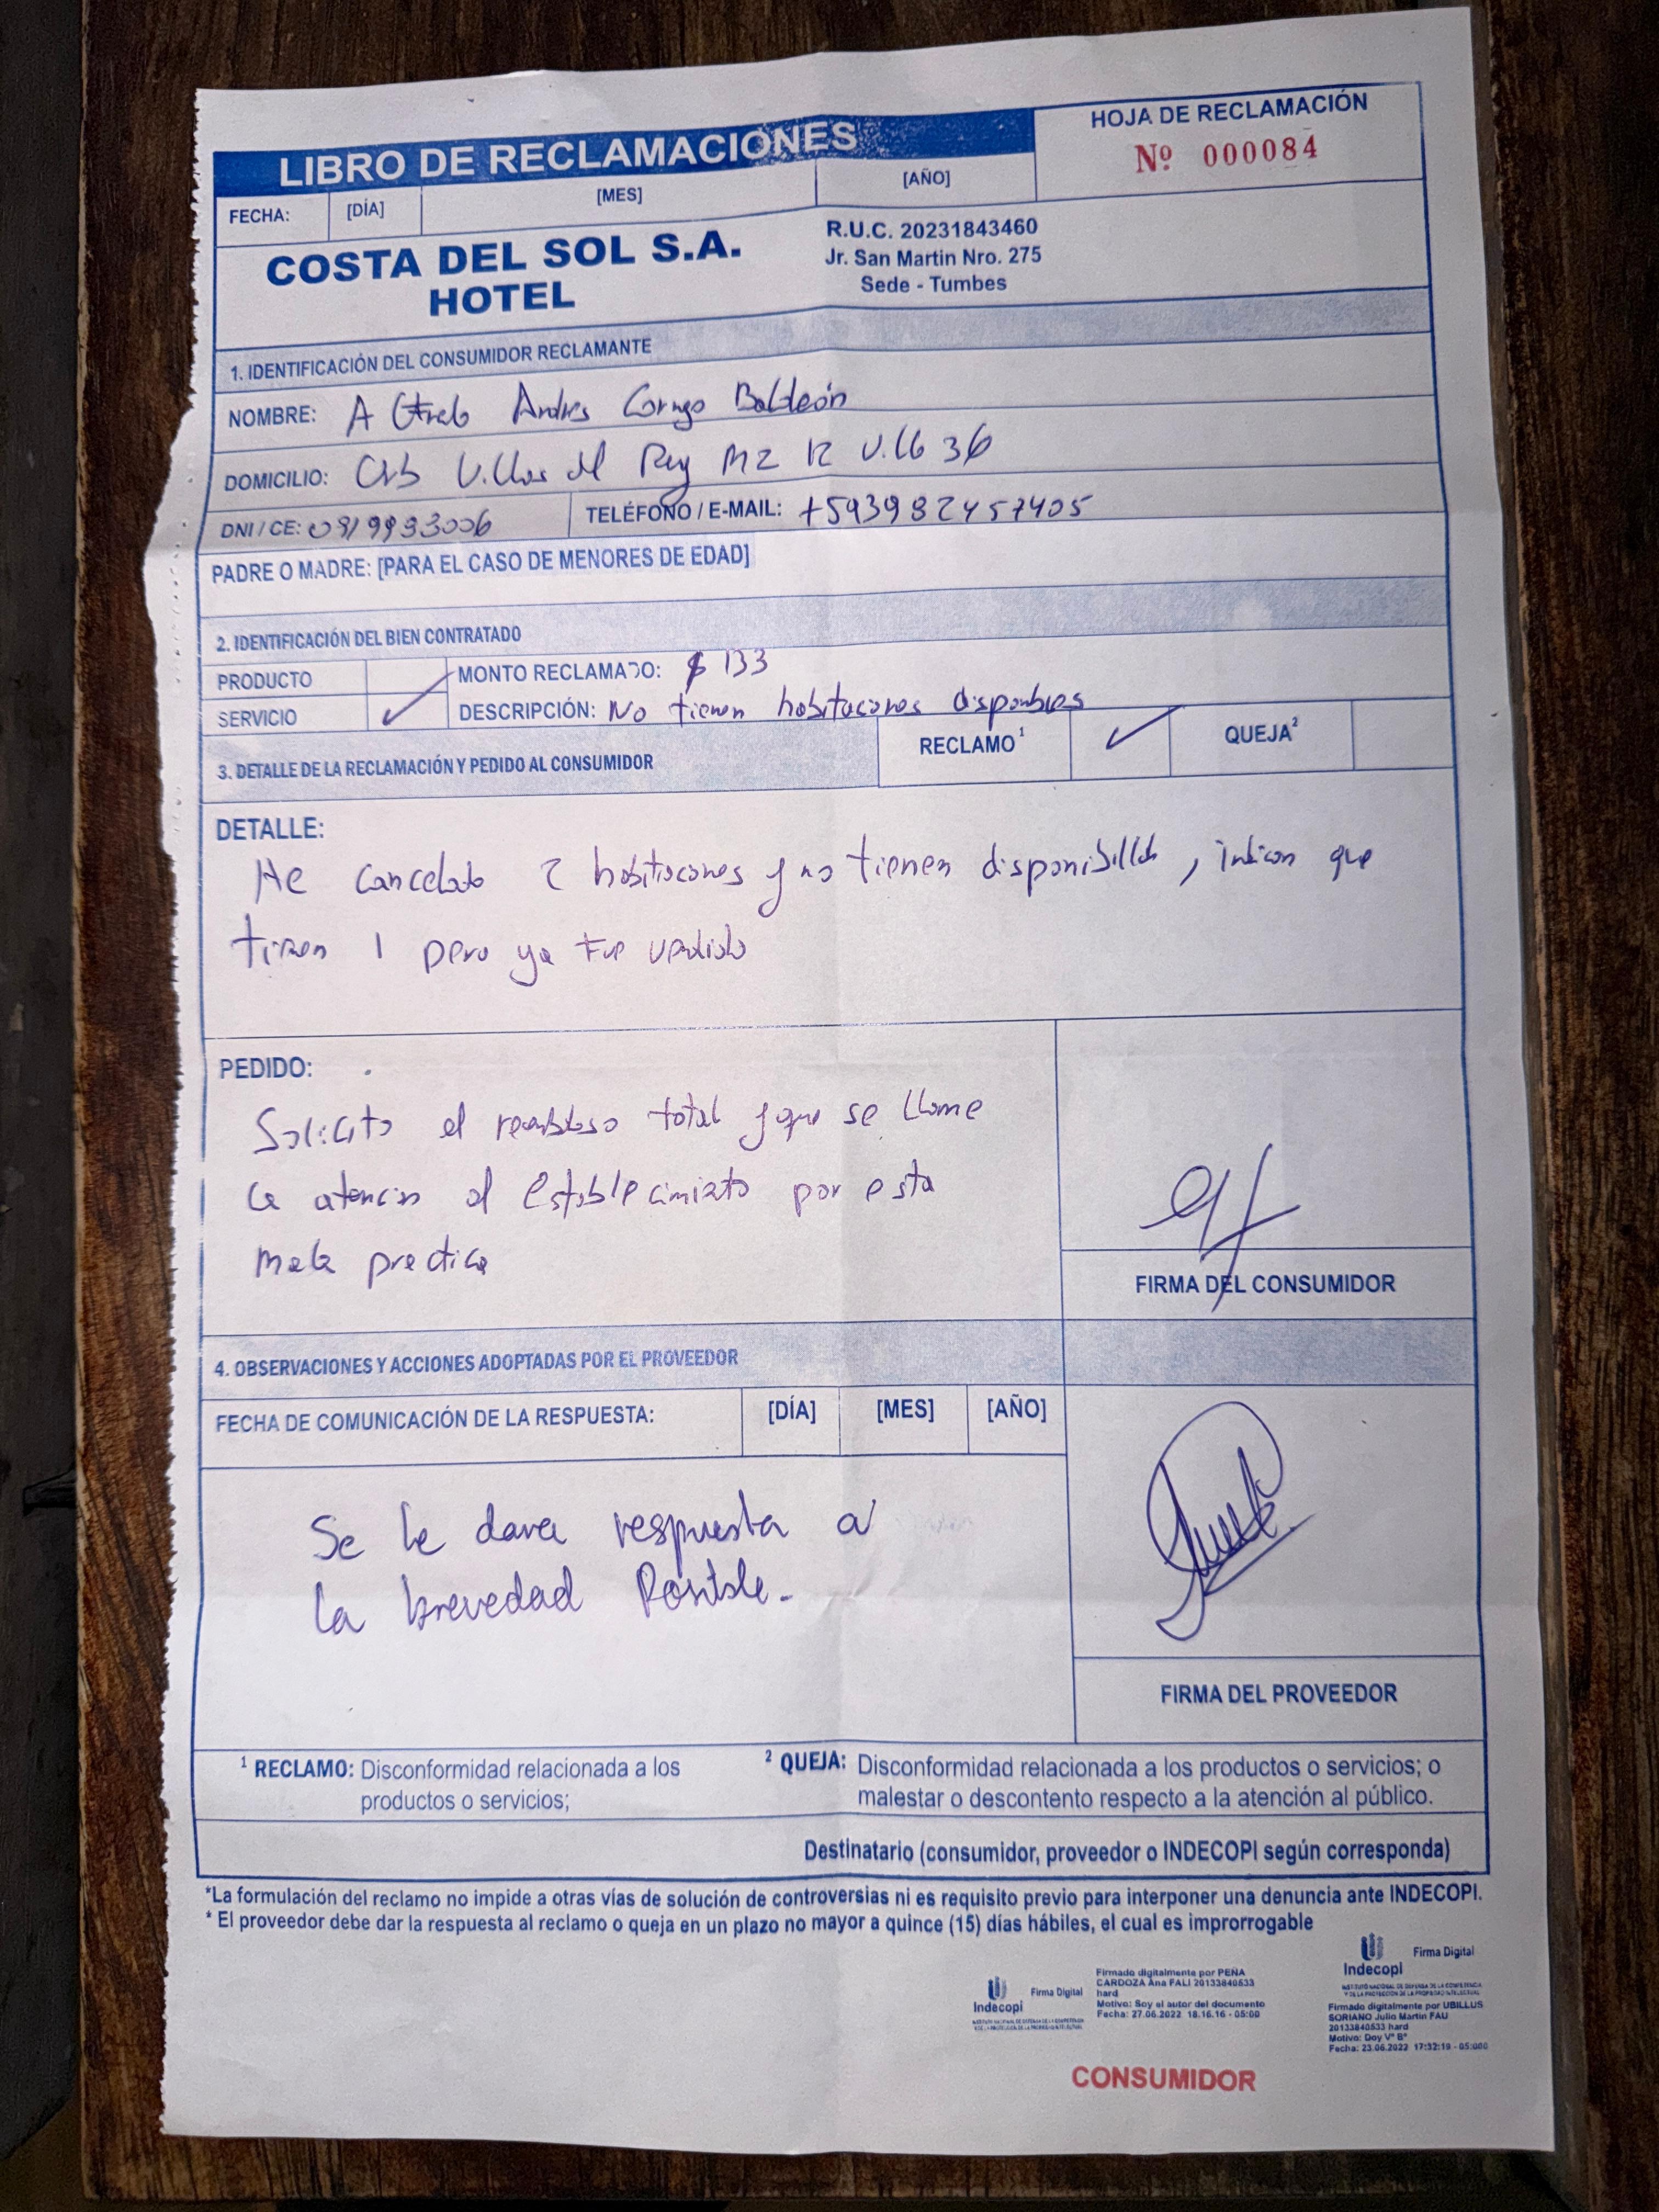 LIBRO DE RECLAMACIONES
HOJA DE RECLAMACIÓN
Nº 000084
FECHA: [DÍA] [MES] [AÑO]
COSTA DEL SOL S.A.
HOTEL
R.U.C. 20231843460
Jr. San Martin Nro. 275
Sede - Tumbes
1. IDENTIFICACIÓN DEL CONSUMIDOR RECLAMANTE
NOMBRE: Andres Baldeón
DOMICILIO: Villas del Rey MZ 12 V.ll6 36
DNI / CE:
TELÉFONO / E-MAIL: +593982457405
PADRE O MADRE: [PARA EL CASO DE MENORES DE EDAD]
2. IDENTIFICACIÓN DEL BIEN CONTRATADO
PRODUCTO
MONTO RECLAMADO: $ 133
SERVICIO ✓
DESCRIPCIÓN: No tienen habitacones disponbles
3. DETALLE DE LA RECLAMACIÓN Y PEDIDO AL CONSUMIDOR
RECLAMO¹ ✓ QUEJA²
DETALLE:
He cancelado 2 habitacones y no tienen disponibilidad, indican que
tienen 1 pero ya fue vendido
PEDIDO:
Solicito el reembolso total y que se llame
la atencion al establecimiento por esta
mala practica
FIRMA DEL CONSUMIDOR
4. OBSERVACIONES Y ACCIONES ADOPTADAS POR EL PROVEEDOR
FECHA DE COMUNICACIÓN DE LA RESPUESTA: [DÍA] [MES] [AÑO]
Se le dara respuesta a
la brevedad Posible.-
FIRMA DEL PROVEEDOR
¹ RECLAMO: Disconformidad relacionada a los
productos o servicios;
² QUEJA: Disconformidad relacionada a los productos o servicios; o
malestar o descontento respecto a la atención al público.
Destinatario (consumidor, proveedor o INDECOPI según corresponda)
*La formulación del reclamo no impide a otras vías de solución de controversias ni es requisito previo para interponer una denuncia ante INDECOPI.
* El proveedor debe dar la respuesta al reclamo o queja en un plazo no mayor a quince (15) días hábiles, el cual es improrrogable
Indecopi
Firma Digital
Firmado digitalmente por PEÑA
CARDOZA Ana FALI 20133840533
hard
Motivo: Soy el autor del documento
Fecha: 27.06.2022 18.16.16 - 05:00
Indecopi
Firma Digital
INSTITUTO NACIONAL DE DEFENSA DE LA COMPETENCIA
Y DE LA PROTECCIÓN DE LA PROPIEDAD INTELECTUAL
Firmado digitalmente por UBILLUS
SORIANO Julio Martin FAU
20133840533 hard
Motivo: Doy V° B°
Fecha: 23.06.2022 17:32:19 - 05:000
CONSUMIDOR